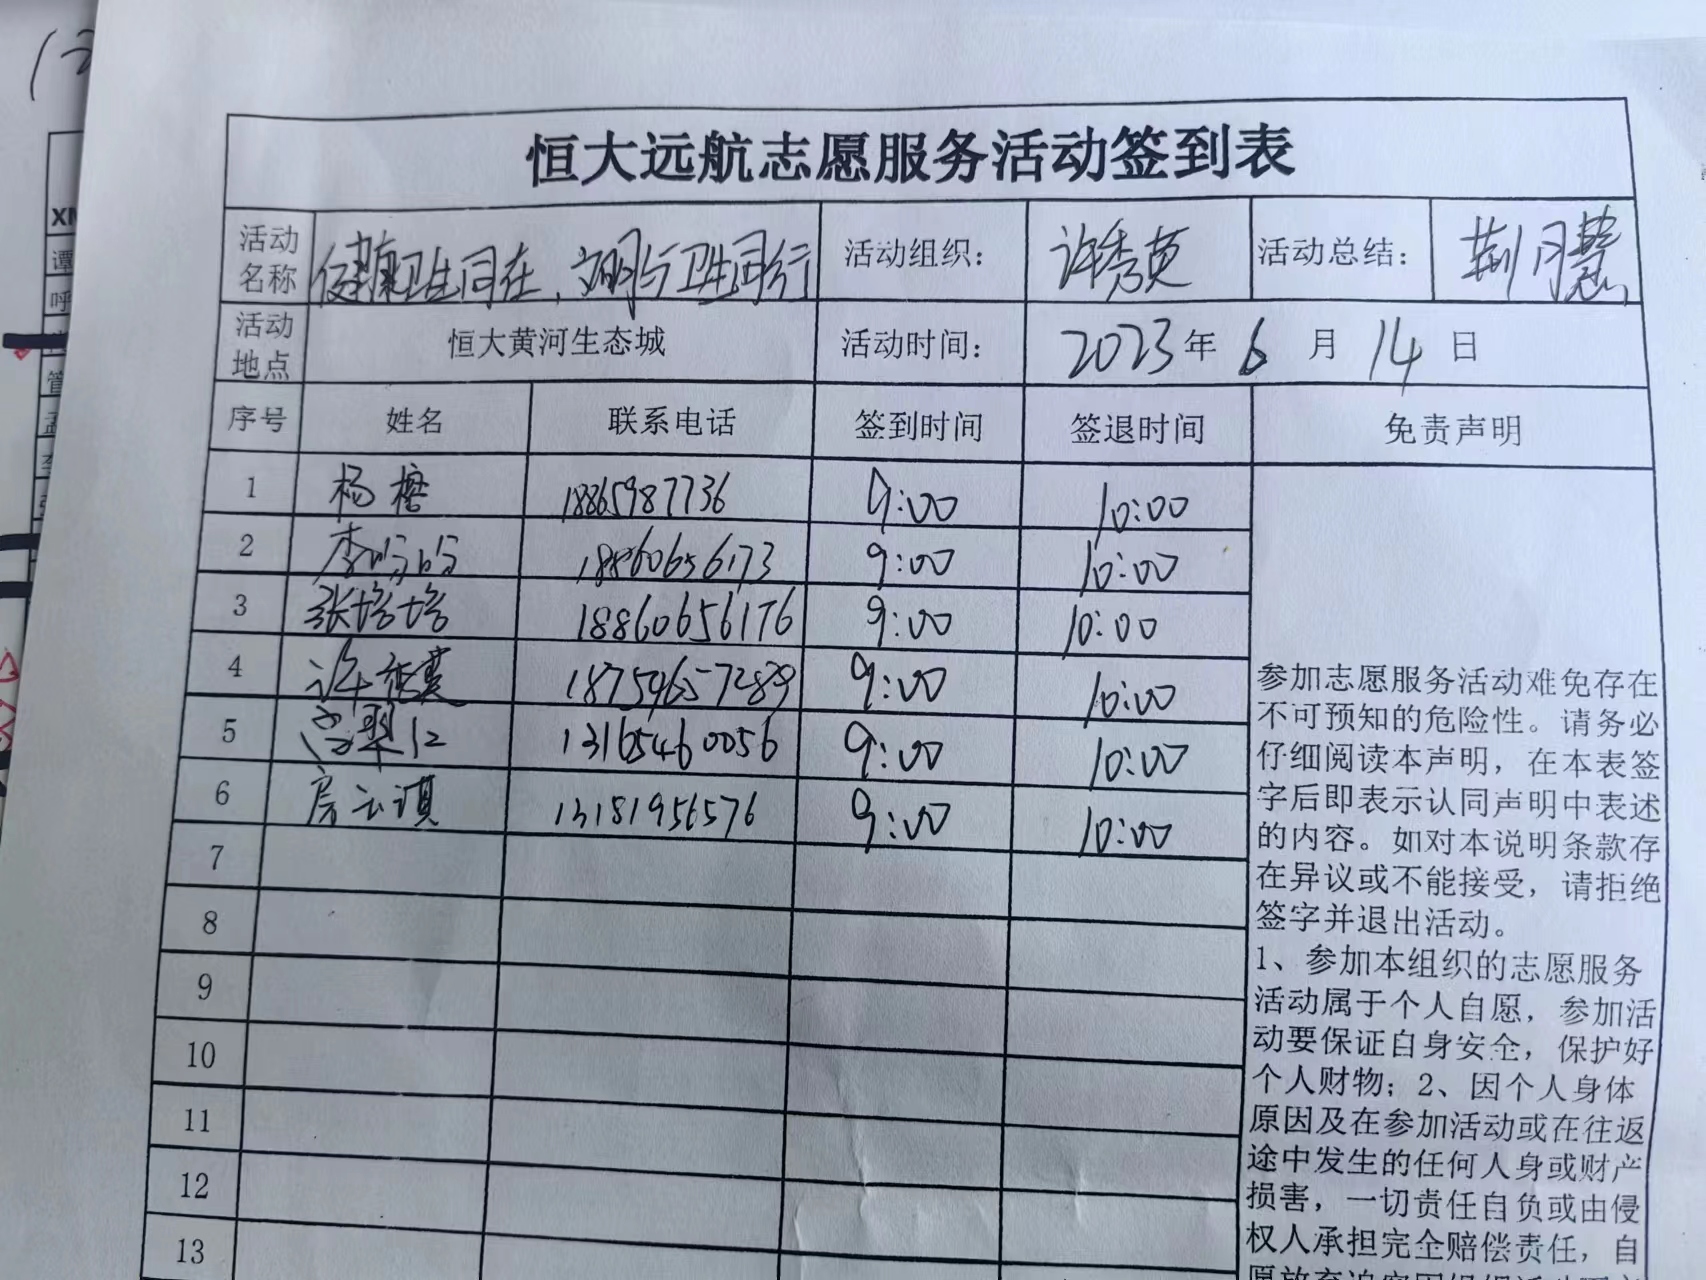 恒大远航志愿服务活动签到表
活动名称 健康卫生同在，文明与卫生同行 活动组织： 许秀英 活动总结： 荆月慧
活动地点 恒大黄河生态城 活动时间： 2023年 6 月 14 日
序号 姓名 联系电话 签到时间 签退时间 免责声明
1 杨 18865987736 9:00 10:00
2 李 18860656173 9:00 10:00
3 张培培 18860656176 9:00 10:00
4 许 18759657289 9:00 10:00
5 13165460056 9:00 10:00
6 房云淇 13181956576 9:00 10:00
7
8
9
10
11
12
13
参加志愿服务活动难免存在
不可预知的危险性。请务必
仔细阅读本声明，在本表签
字后即表示认同声明中表述
的内容。如对本说明条款存
在异议或不能接受，请拒绝
签字并退出活动。
1、参加本组织的志愿服务
活动属于个人自愿，参加活
动要保证自身安全，保护好
个人财物；2、因个人身体
原因及在参加活动或在往返
途中发生的任何人身或财产
损害，一切责任自负或由侵
权人承担完全赔偿责任，自
XM
谭
呼
管
孟
李